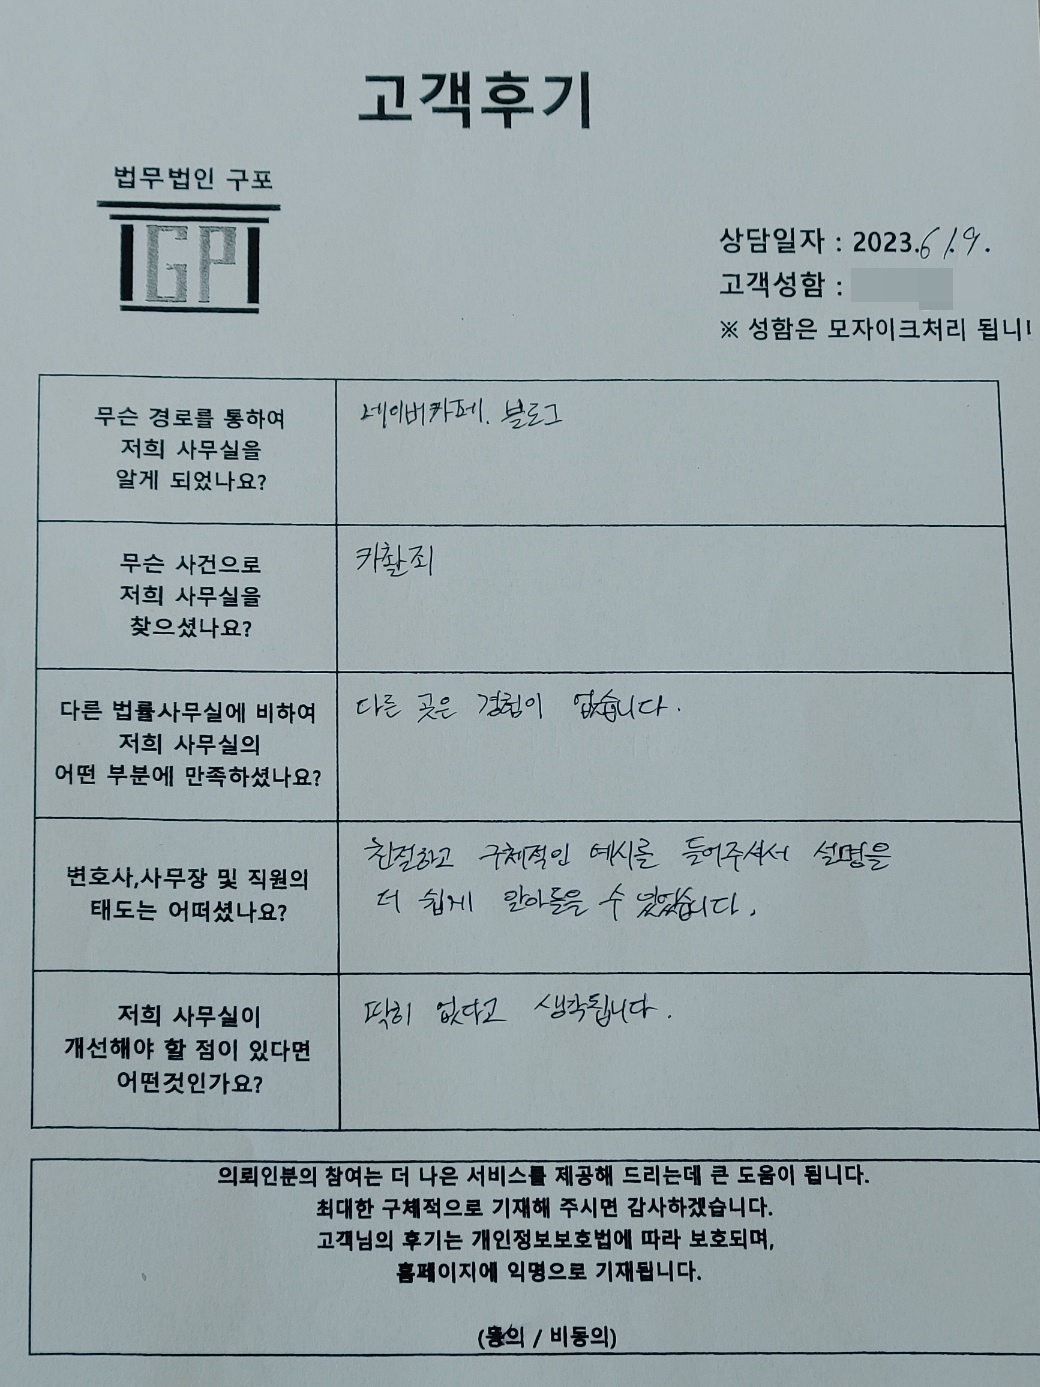 고객후기
법무법인 구포
GP
상담일자 : 2023. 6. 9.
고객성함 :
※ 성함은 모자이크처리 됩니
무슨 경로를 통하여
저희 사무실을
알게 되었나요?
네이버카페. 블로그
무슨 사건으로
저희 사무실을
찾으셨나요?
카촬죄
다른 법률사무실에 비하여
저희 사무실의
어떤 부분에 만족하셨나요?
다른 곳은 경험이 없습니다.
변호사,사무장 및 직원의
태도는 어떠셨나요?
친절하고 구체적인 예시를 들어주셔서 설명을
더 쉽게 알아들을 수 있었습니다.
저희 사무실이
개선해야 할 점이 있다면
어떤것인가요?
딱히 없다고 생각됩니다.
의뢰인분의 참여는 더 나은 서비스를 제공해 드리는데 큰 도움이 됩니다.
최대한 구체적으로 기재해 주시면 감사하겠습니다.
고객님의 후기는 개인정보보호법에 따라 보호되며,
홈페이지에 익명으로 기재됩니다.
(동의 / 비동의)